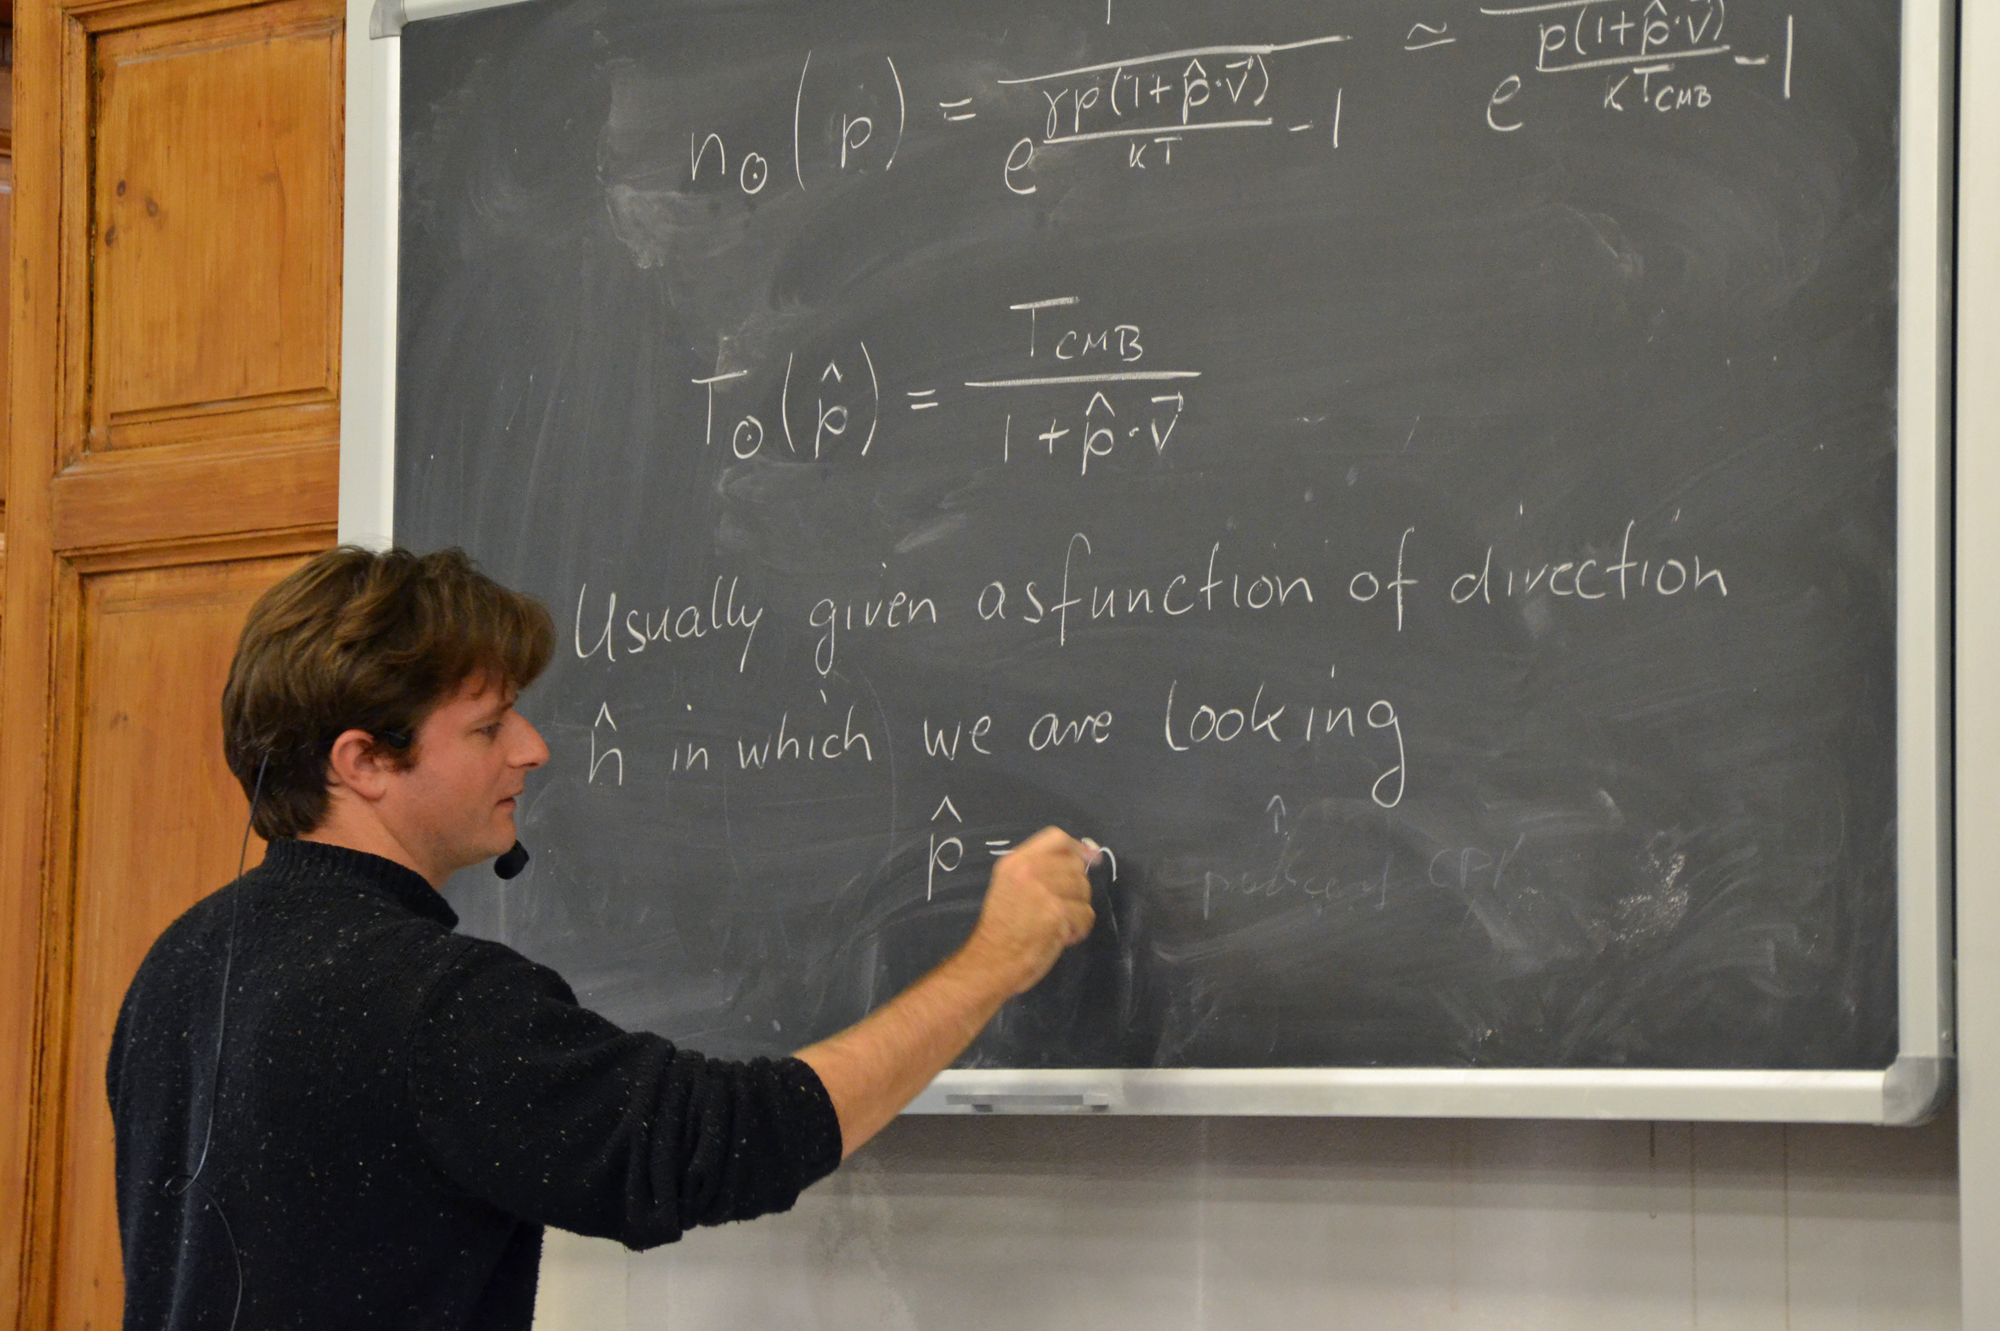 n⊙(p) = 1/(e^(γp(1+p̂·v⃗)/kT) - 1) ≃ 1/(e^(p(1+p̂·v⃗)/kT_CMB) - 1)
T⊙(p̂) = T_CMB/(1+p̂·v⃗)
Usually given as function of direction
n̂ in which we are looking
p̂ = n